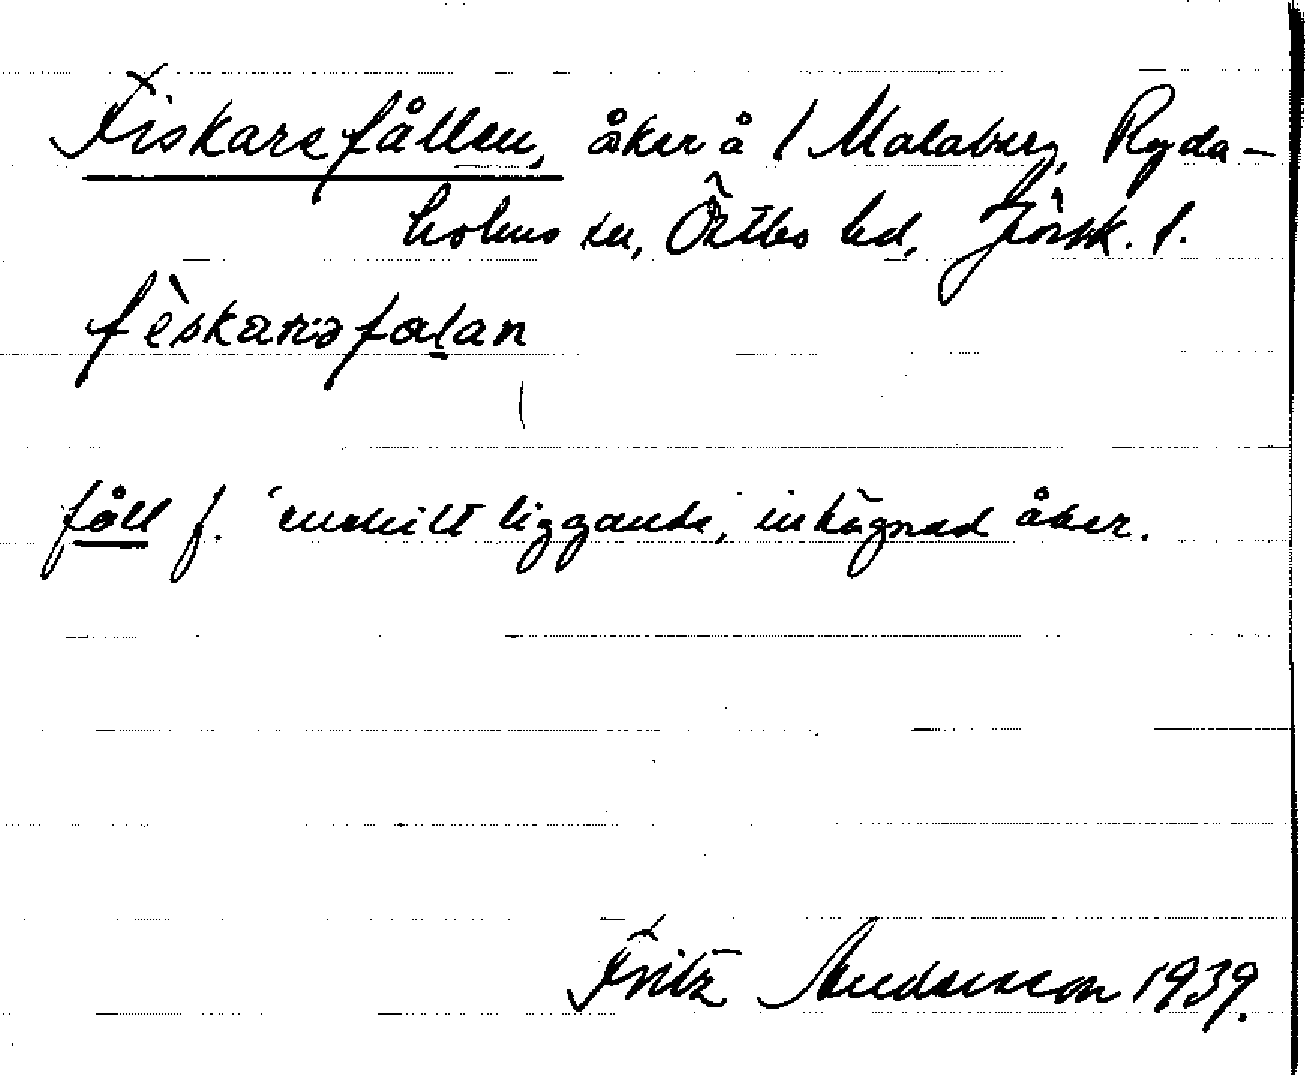 Fiskarefållen, åker å 1 Malaberg, Ryda-
holms sn, Östbo hd, Jönk. l.
fèskarəfaLan
fåll f. 'enskilt liggande, inhägnad åker.
Fritz Andersson 1939.